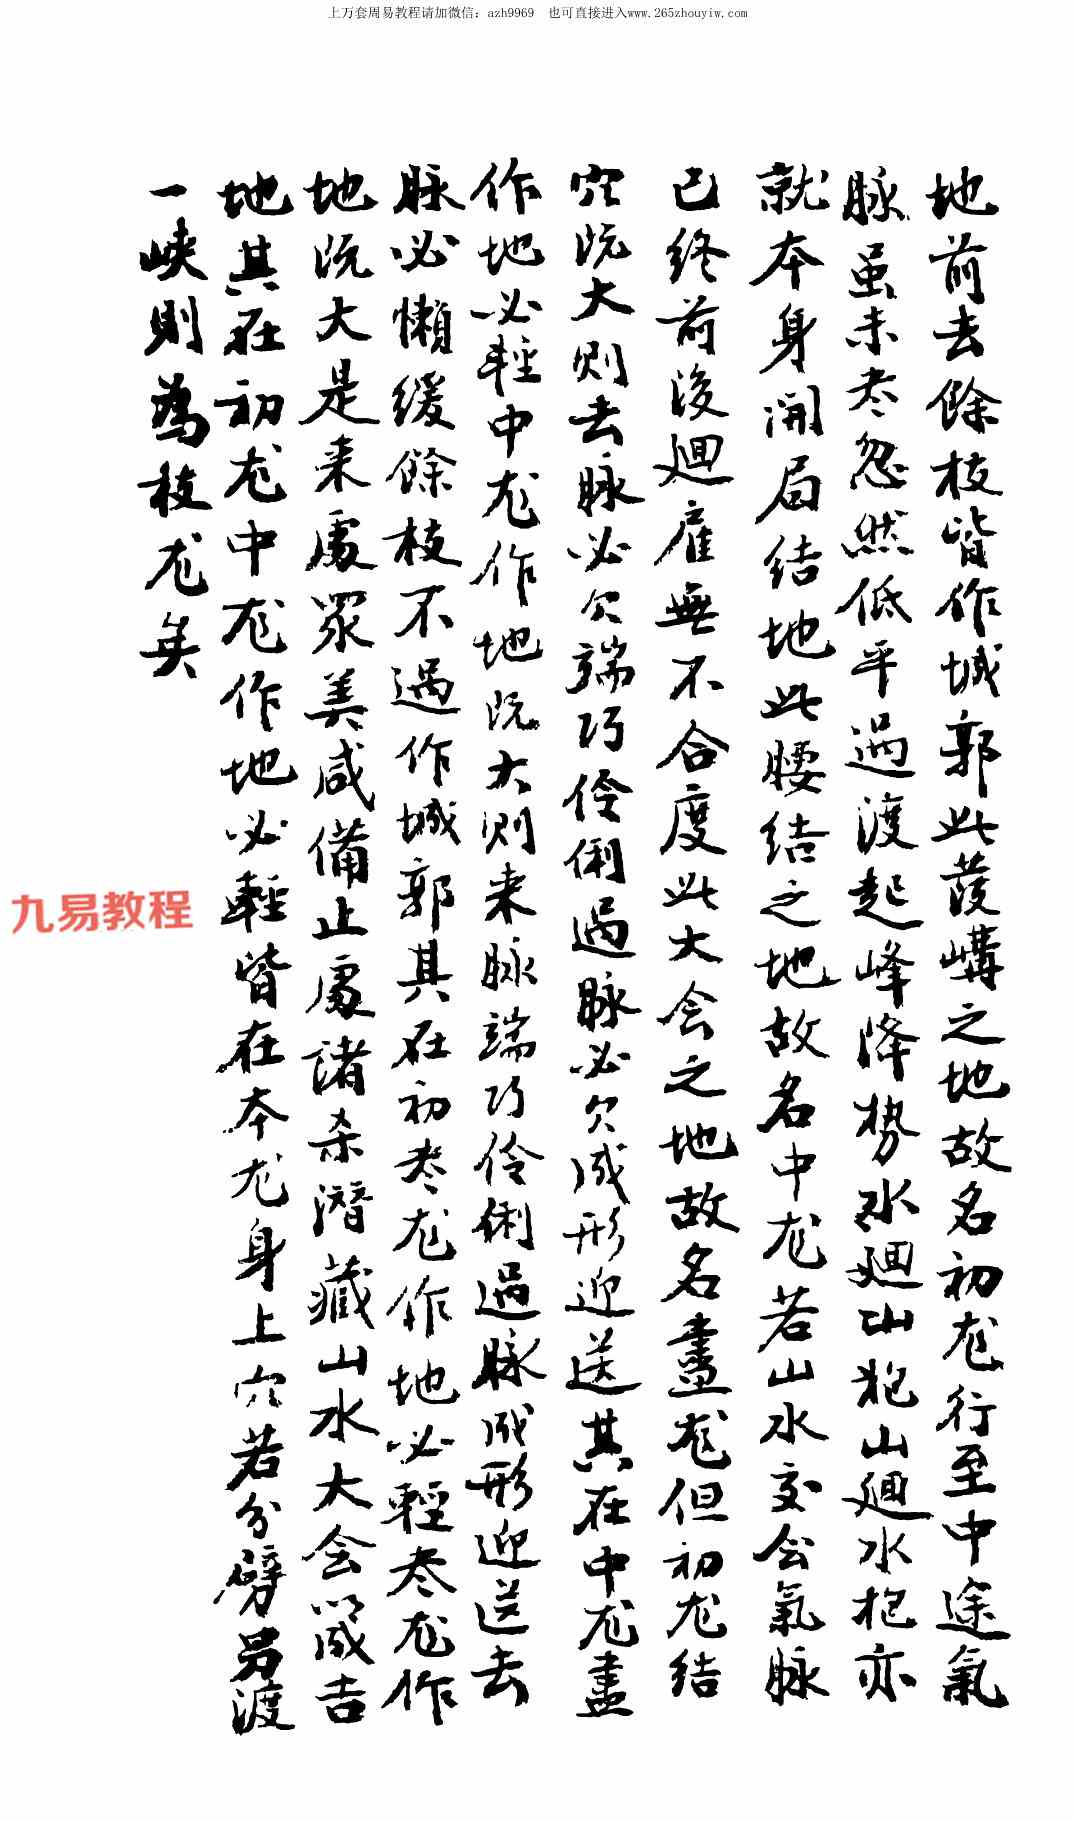 上万套周易教程请加微信：azh9969 也可直接进入www.265zhouyiw.com
地前去餘枝皆作城郭此護Missing之地故名初龙行至中途氣
脉虽未尽忽然低平過渡起峰降势水廻山抱山廻水抱亦
就本身開局結地此腰結之地故名中龙若山水交会氣脉
已终前後廻雇無不合度此大会之地故名盡龙但初龙结
穴既大则去脉必欠端巧伶俐過脉必欠成形迎送其在中龙盡
作地必輕中龙作地既大则来脉端巧伶俐過脉成形迎送去
脉必懶緩餘枝不過作城郭其在初尽龙作地必輕尽龙作
地既大是来處眾美咸備止處諸杀潛藏山水大会以成吉
地其在初龙中龙作地必輕皆在本龙身上穴若分劈另渡
一峡則為枝龙矣
九易教程